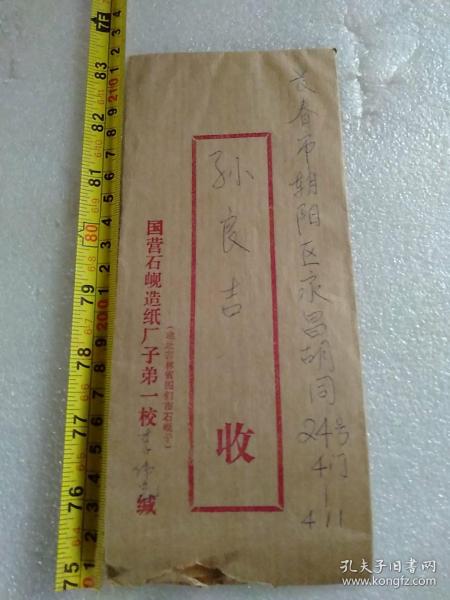 长春市朝阳区永昌胡同24号
4门
4-11
孙良吉
收
国营石岘造纸厂子弟一校
(地北吉林省图们市石岘子)
缄
75 76 77 78 79 80 81 82 83 7F
200 210
孔夫子旧书网
www.kongfz.com